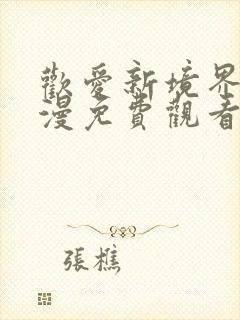 歡愛新境界
漫免費觀看
張樵